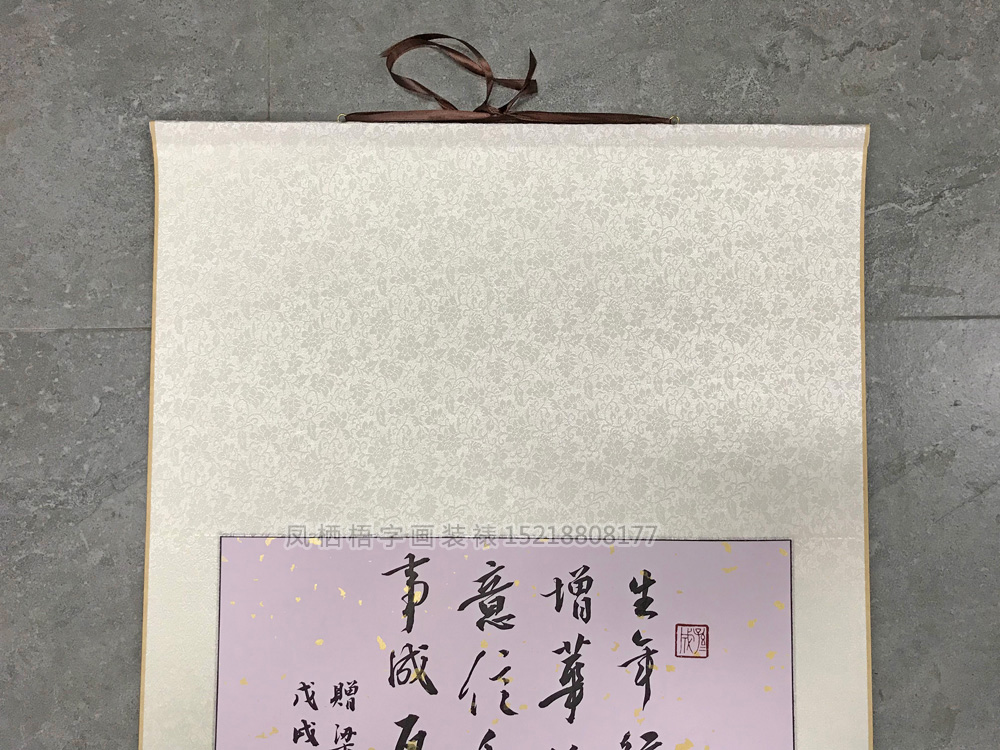 凤·栖·梧·字·画·装·裱·15218808177
生年
增華
意信
事成
贈
戊戌